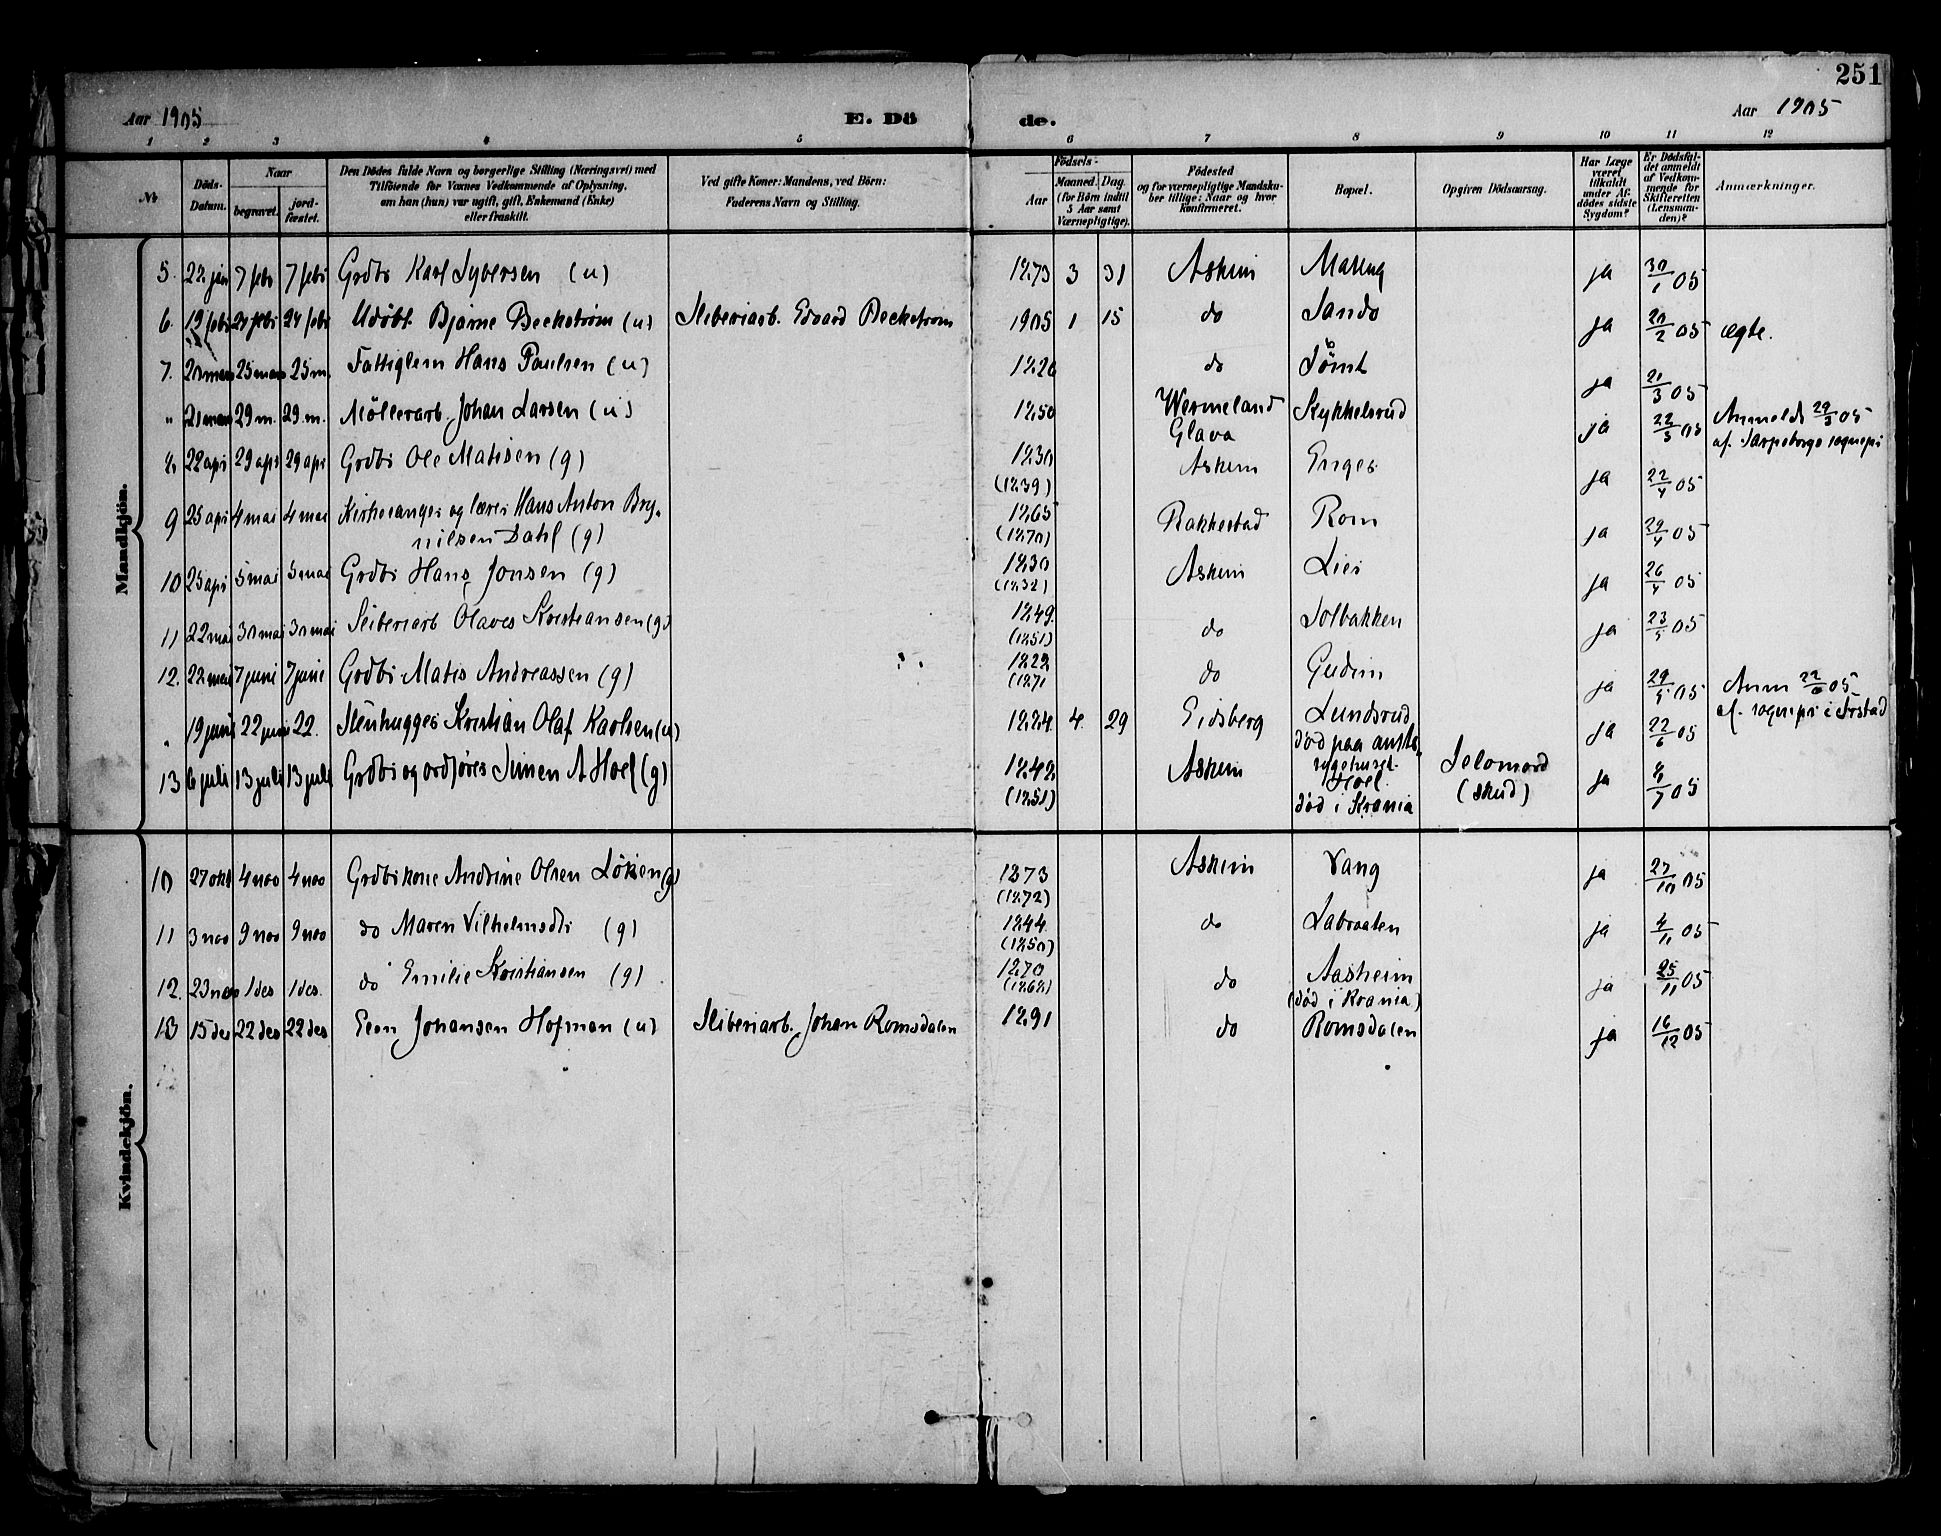 251
Aar 1905 E. Dö de. Aar 1905
1 2 3 4 5 6 7 8 9 10 11 12
№
Döds-Datum.
Naar
begravet.
jord-fæstet.
Den Dödes fulde Navn og borgerlige Stilling (Næringsvei) med
Tilföiende for Voxnes Vedkommende af Oplysning,
om han (hun) var ugift, gift, Enkemand (Enke)
eller fraskilt.
Ved gifte Koner: Mandens, ved Börn:
Faderens Navn og Stilling.
Födsels-
Aar
Maaned. Dag.
(for Börn indtil
5 Aar samt
Værnepligtige).
Födested
og for værnepligtige Mandsku-
ber tillige: Naar og hvor
konfirmeret.
Bopæl.
Opgiven Dödsaarsag.
Har Læge
været
tilkaldt
under Af-
dödes sidste
Sygdom?
Er Dödsfal-
det anmeldt
af Vedkom-
mende for
Skifteretten
(Lensman-
den)?
Anmærkninger.
Mandkjön.
5. 22 jan 7 febr 7 febr Grdbr Karl Syversen (u) 1873 3 31 Askim ja 30/1 05
6. 19 febr 24 febr 24 febr Udöbt Bjarne Beckström (u) Sliberiarb. Edvard Beckström 1905 1 15 do Sando ja 20/2 05 ægte.
7. 20 mars 25 mars 25 m. Fattiglem Hans Paulsen (u) 1820 do Tömt ja 21/3 05
" 21 mars 29 m. 29 m. Möllerarb. Johan Larsen (u) 1850 Wermeland Glava Kykkelsrud ja 22/3 05 Anmeldt 29/3 05
af Sarpsborgs sognepr
8. 22 apr 29 apr 29 apr Grdbr Ole Matisen (g) 1830 (1839) Askim Enger ja 22/4 05
9 25 apr 4 mai 4 mai Kirkesanger og lærer Hans Anton Bry-
nilsen Dahl (g) 1865 (1870) Rakkestad Rom ja 29/4 05
10 25 apr 5 mai 5 mai Grdbr Hans Jonsen (g) 1830 (1832) Askim Lier ja 26/4 05
11 22 mai 30 mai 30 mai Sliberiarb Olaves Kristiansen (g) 1849 (1851) do Solbakken ja 23/5 05
12. 22 mai 7 juni 7 juni Grdbr Matis Andreassen (g) 1822 (1871 do Gudim ja 29/5 05
" 19 juni 22 juni 22. Stenhugger Kristian Olaf Karlsen (u) 1884 4. 29 Eidsberg Lundsrud
död paa
sygehuset ja 22/6 05 Anm 22/6 05
af. sognepr i
13 6 juli 13 juli 13 juli Grdbr og ordförer Simen A Hoel (g) 1848 (1851) Askim Hoel.
död i Krania Selvmord
(skud) ja 8/7 05
Kvindekjön.
10 27 okt 4 nov 4 nov Grdbrkone Andrine Olsen Löken (g) 1873 (1872) Askim Vang ja 27/10 05
11 3 nov 9 nov 9 nov do Maren Vilhelmsdtr (g) 1844 (1850) do Labraaten ja 4/11 05
12. 23 nov 1 des 1 des. do Emilie Kristiansen (g) 1870 (1868) do Aasheim
(död i Krania) ja 25/11 05
13 15 des 22 des 22 des Johansen Hofman (u) Sliberiarb. Johan Romsdalen 1891 do Romsdalen ja 16/12 05